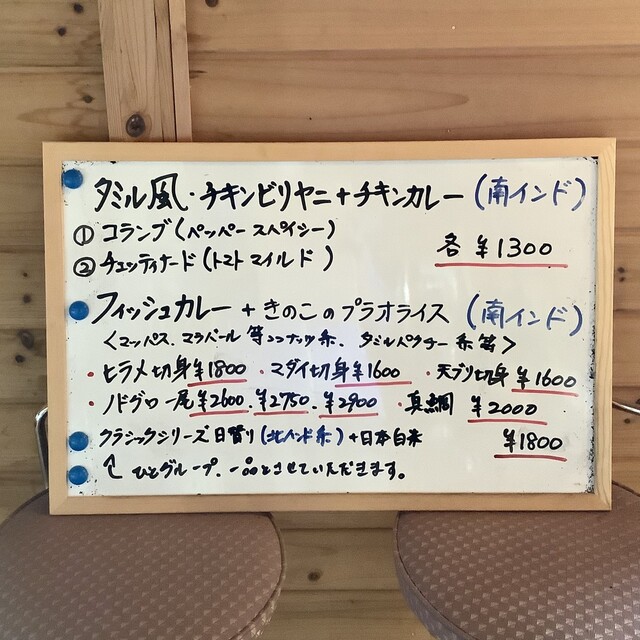 タミル風・チキンビリヤニ+チキンカレー(南インド)
① コランブ(ペッパースパイシー)
② チェッティナード(トマトマイルド) 各¥1300
フィッシュカレー+きのこのプラオライス(南インド)
<マッパス、マラバール等ココナッツ系、タミルパクチー系等>
・ヒラメ切身¥1800 ・マダイ切身¥1600 ・天ブリ切身¥1600
・ノドグロ一尾¥2600、¥2750、¥2900 ・真鯛 ¥2000
クラシックシリーズ日替り(北インド系)+日本白米 ¥1800
ひとグループ、一品とさせていただきます。